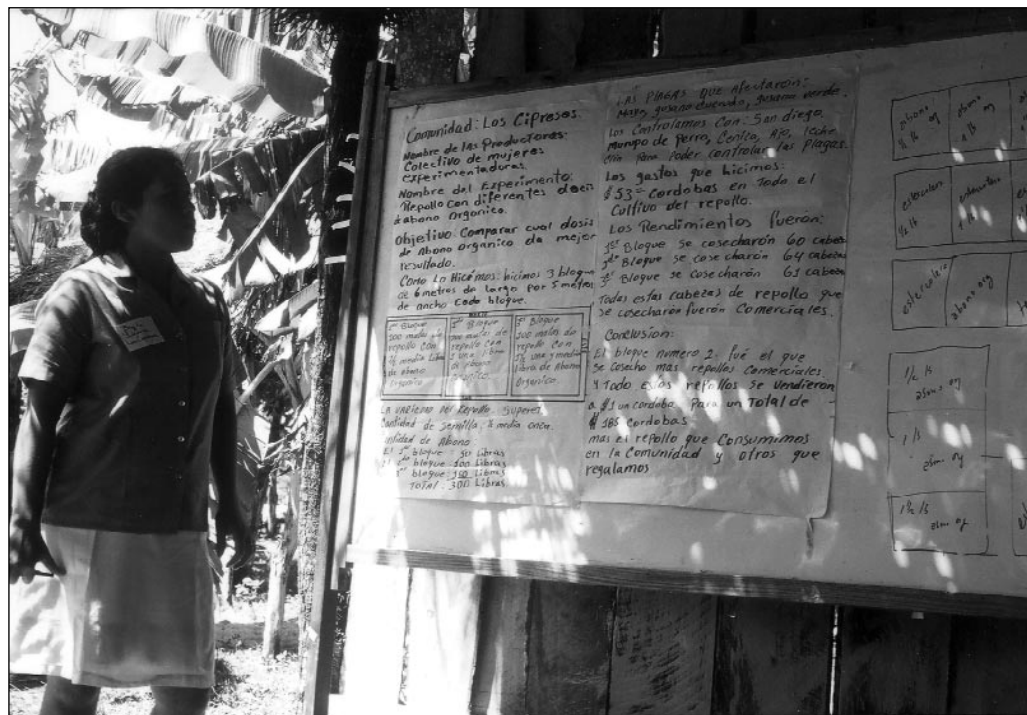 Comunidad: Los Cipreses.
Nombre de las Productoras:
Colectivo de mujeres
Experimentadoras.
Nombre del Experimento:
Repollo con diferentes dosis
de abono organico.
Objetivo: Comparar cual dosis
de Abono organico da mejor
resultado.
Como Lo Hicimos: hicimos 3 bloque
de 6 metros de largo por 5 metros
de ancho cada bloque.
1er Bloque
100 matas de
repollo con
½ media Libra
de abono
organico
2do Bloque
100 matas de
repollo con
1 una libra
de abono
organico.
3er Bloque
100 matas de
repollo con
1½ una y media
libra de Abono
organico
La variedad del Repollo: Superet
Cantidad de Semilla: ½ media onza.
Cantidad de Abono:
El 1er bloque: 50 Libras
El 2do bloque: 100 Libras
3er bloque: 150 Libras
TOTAL: 300 Libras
LAS PLAGAS QUE Afectaron:
gusano verde.
Los Controlamos Con: San diego,
de Perro, Ceniza, Ajo, leche
para Poder controlar las plagas.
Los gastos que hicimos:
$53= Cordobas en Todo el
Cultivo del repollo.
Los Rendimientos fuerón:
1er Bloque Se cosecharón 60 cabezas
2do Bloque se cosecharón 64 cabezas
3er Bloque se cosecharón 61 cabezas
Todas estas cabezas de repollo que
se cosecharon fuerón Comerciales.
Conclusion:
El bloque numero 2. fué el que
se cosecho mas repollos comerciales.
y Todo estos repollos se vendieron
a $1 un cordoba Para un Total de
$185 Cordobas
mas el repollo que Consumimos
en la Comunidad y otros que
regalamos
abono
½ lb og
abono
1 lb og
½ lb
1 lb
abono og
½ lb
1 lb
1½ lb